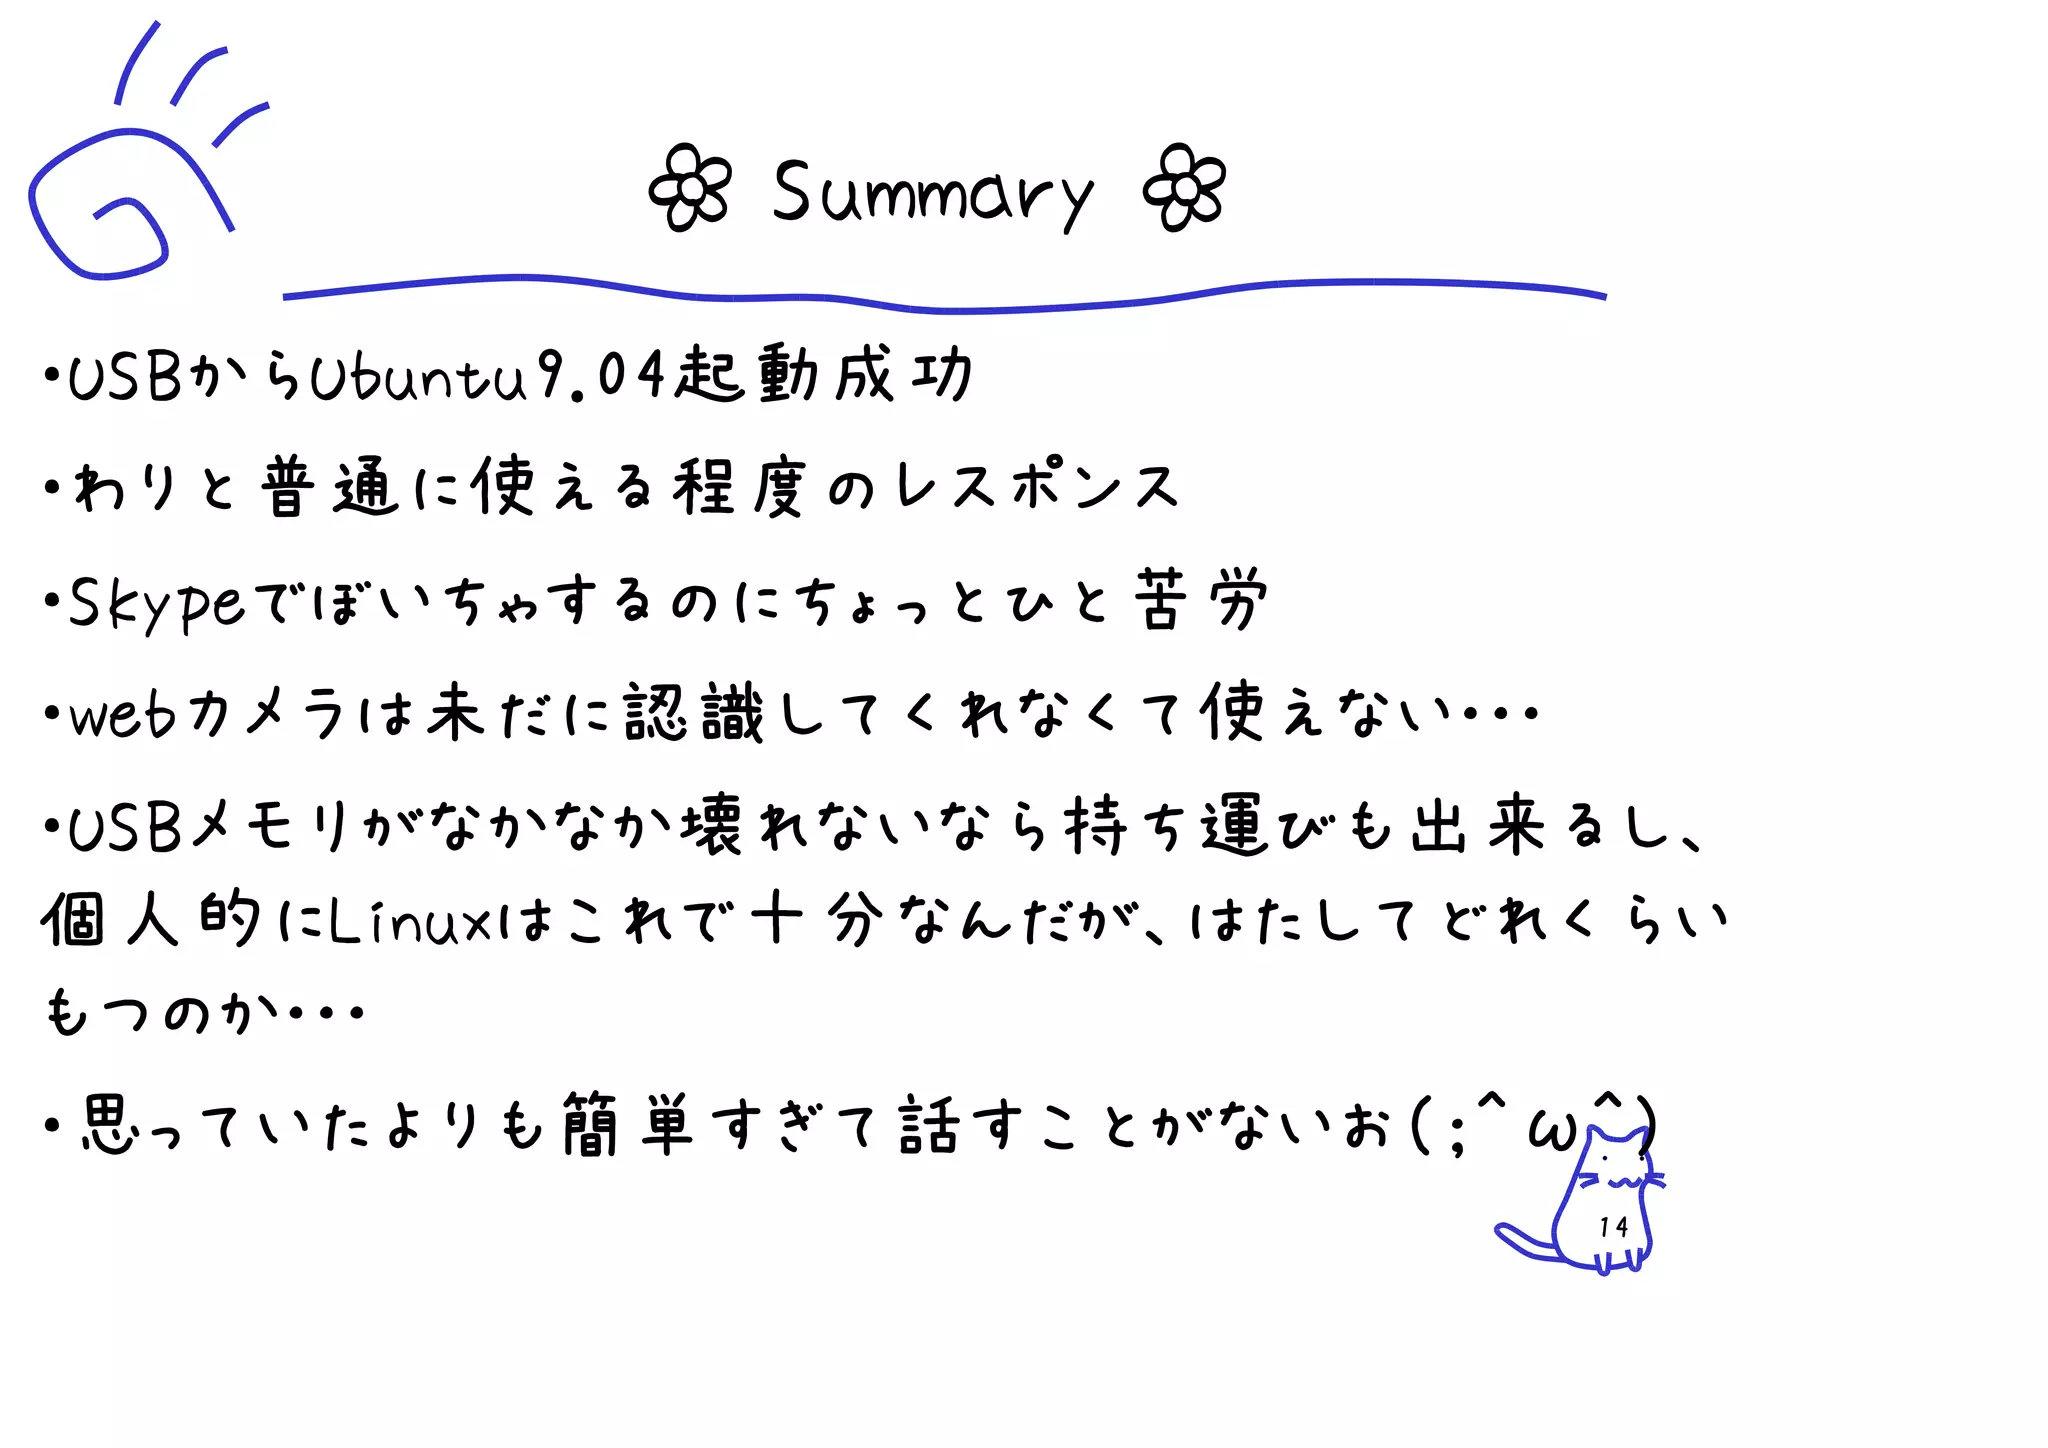 ❀ Summary ❀
・USBからUbuntu9.04起動成功
・わりと普通に使える程度のレスポンス
・Skypeでぼいちゃするのにちょっとひと苦労
・webカメラは未だに認識してくれなくて使えない・・・
・USBメモリがなかなか壊れないなら持ち運びも出来るし、
個人的にLinuxはこれで十分なんだが、はたしてどれくらい
もつのか・・・
・思っていたよりも簡単すぎて話すことがないお(;^ω^)
14